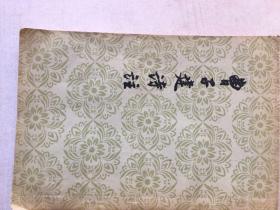 曹子建诗注